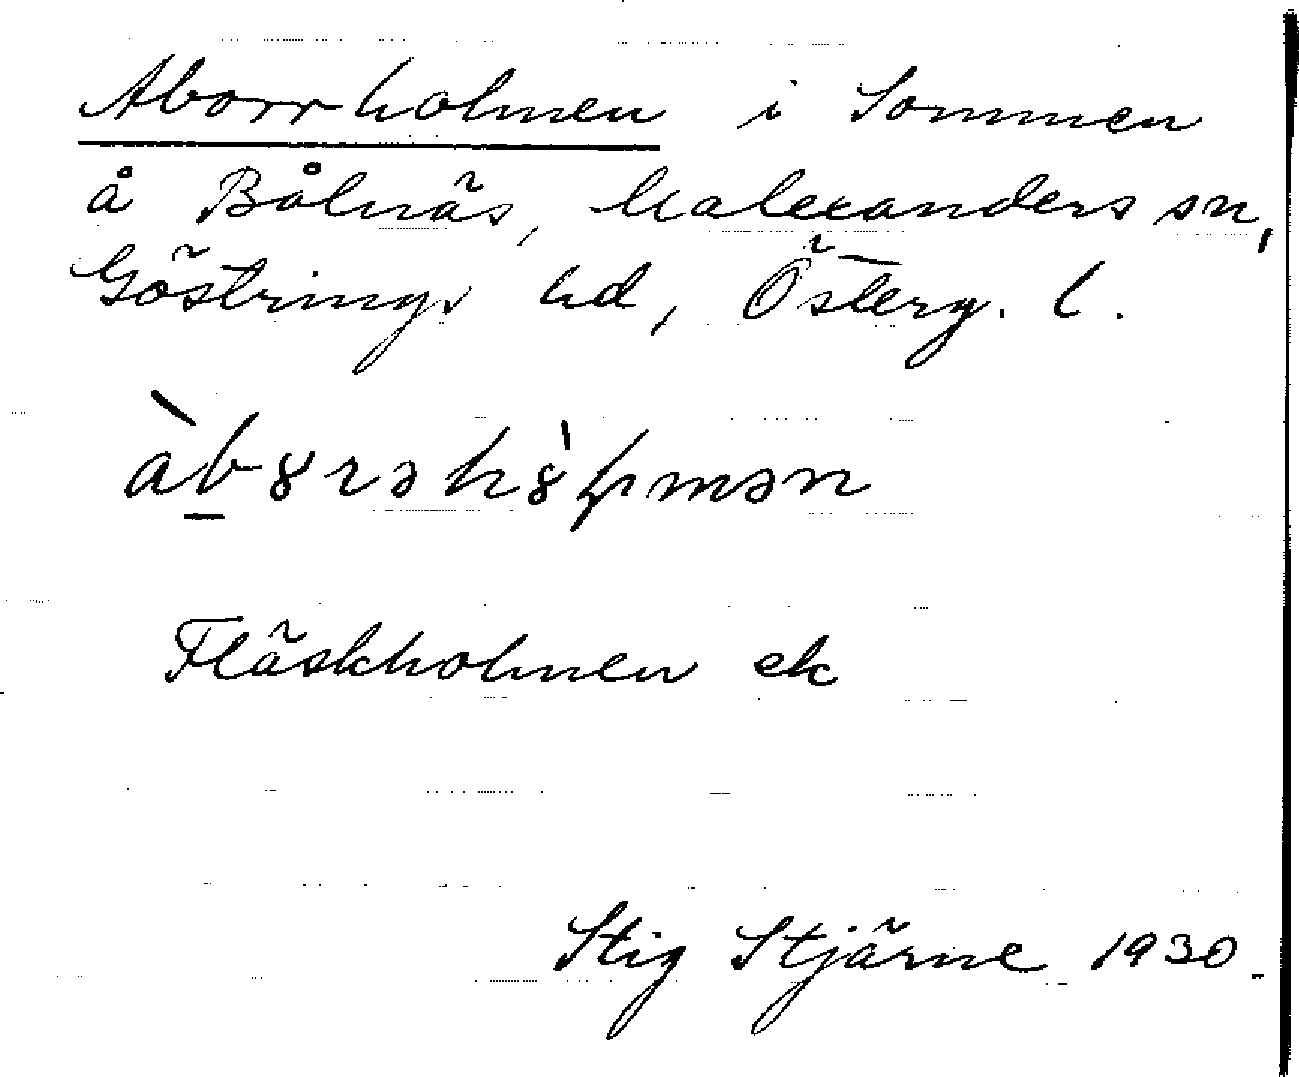 Aborrholmen i Sommen
å Bålnäs, Malexanders sn,
Göstrings hd, Österg. l.
àb̲8rəh8̀ļmən
Fläskholmen ek
Stig Stjärne 1930